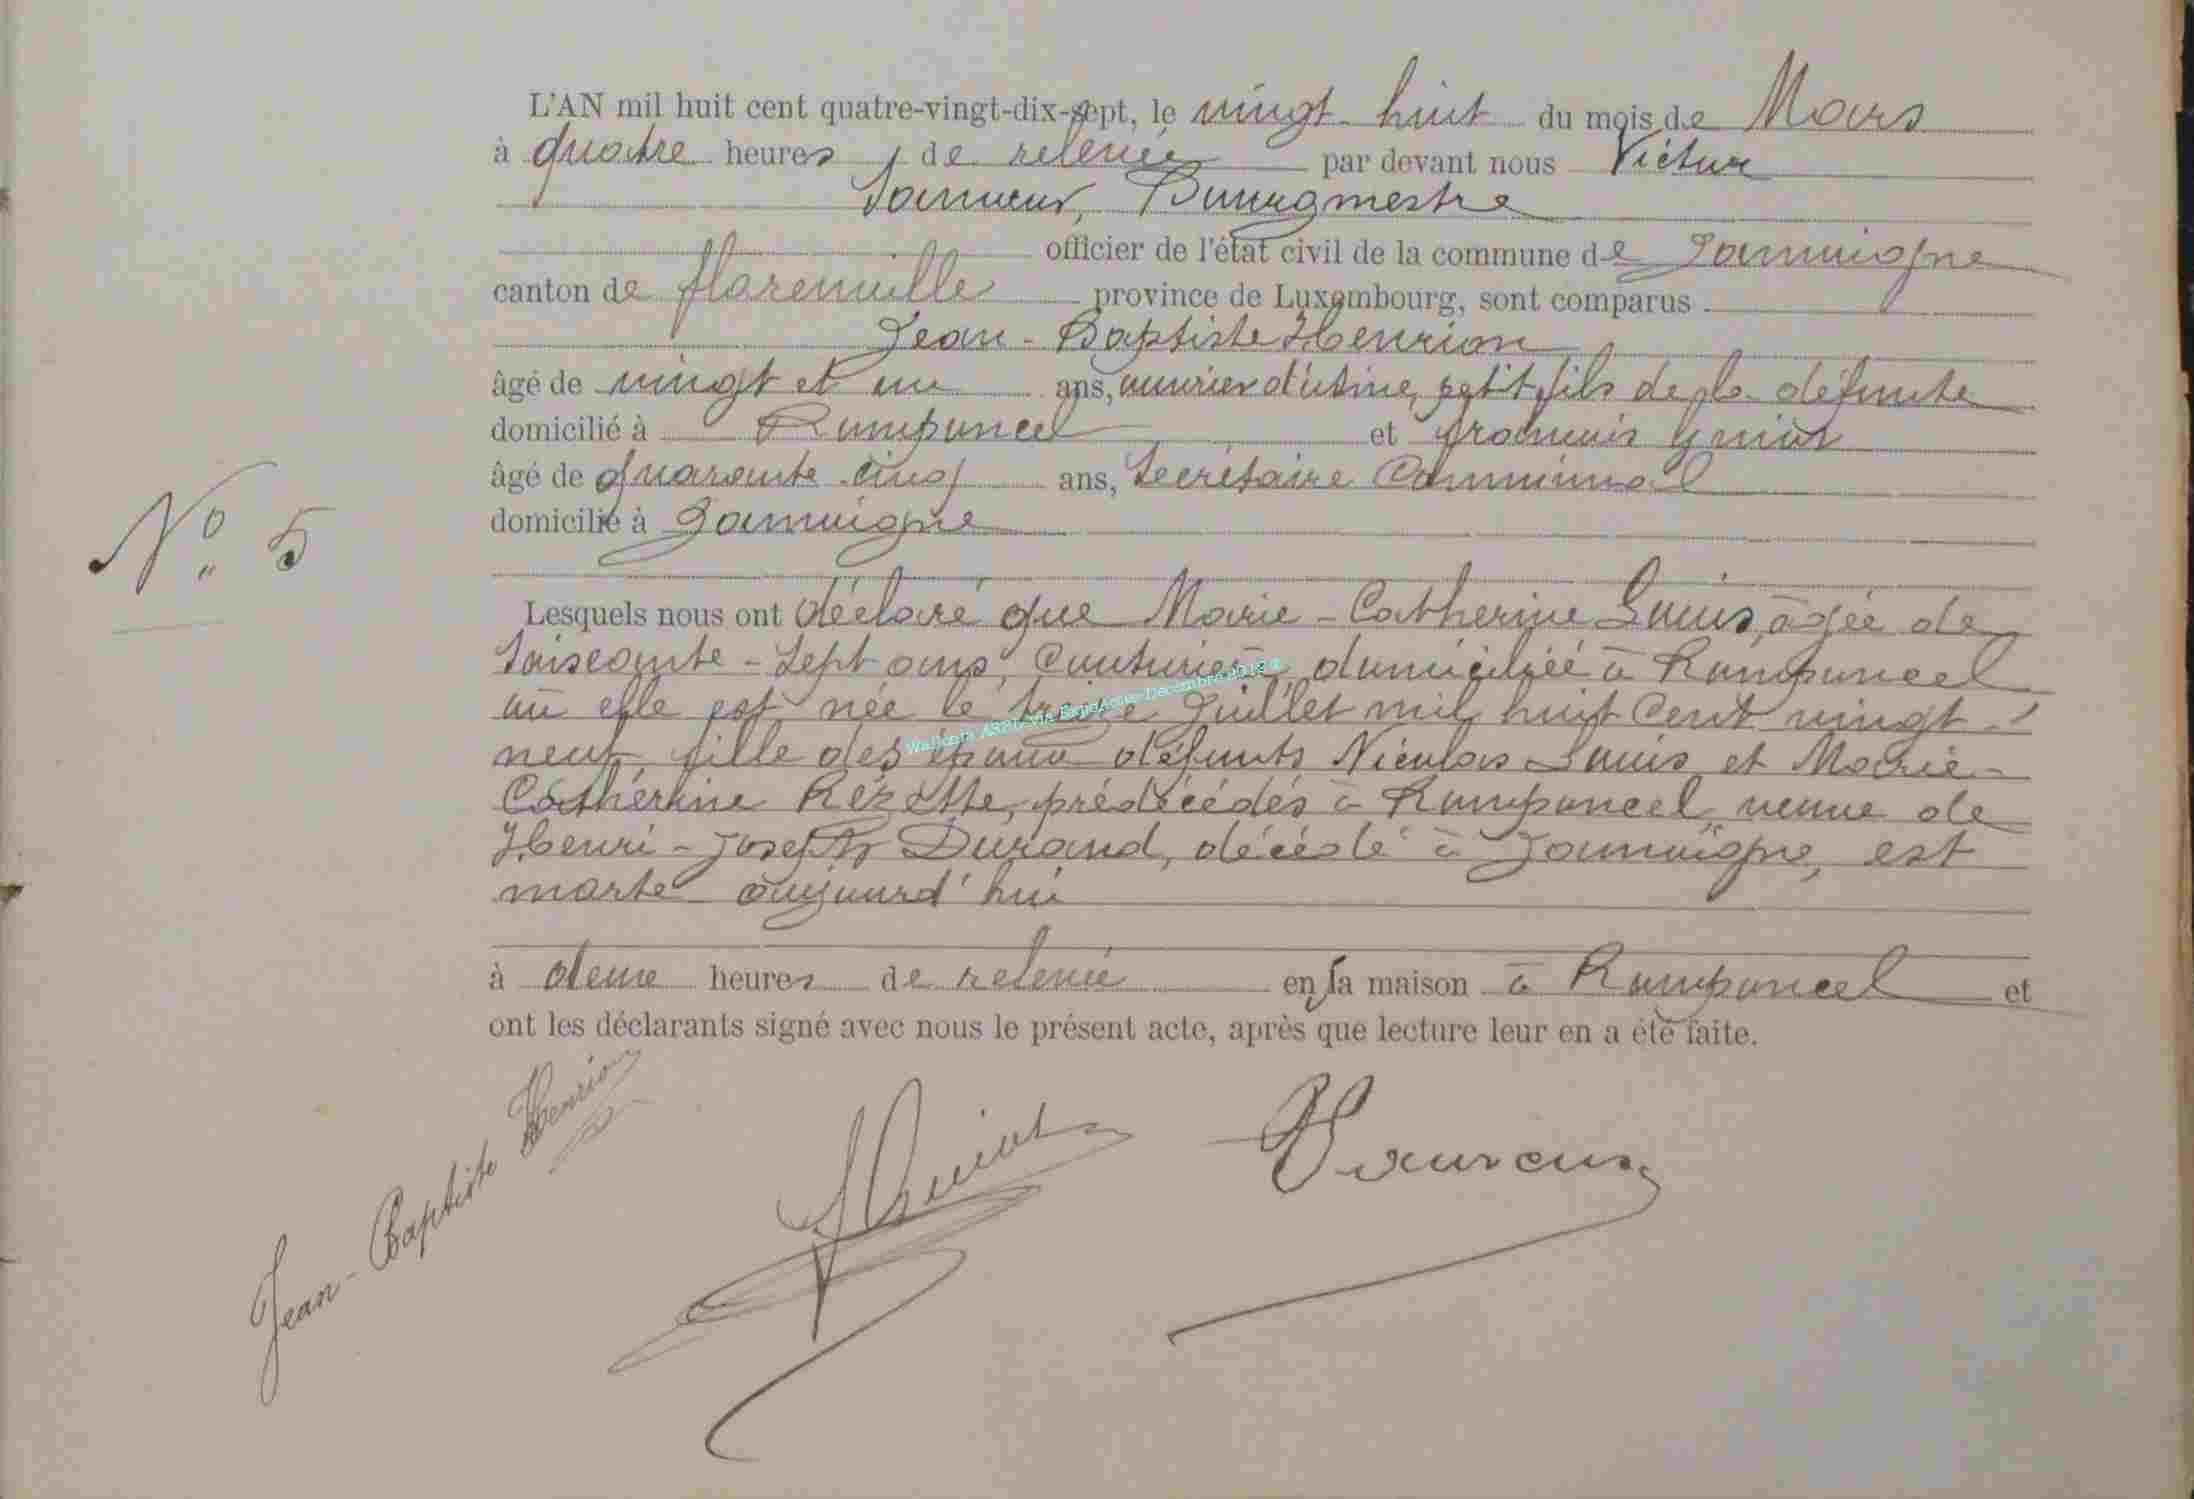 L'AN mil huit cent quatre-vingt-dix-sept, le vingt-huit du mois de Mars
à quatre heures de relevée par devant nous Victor
Bourgmestre
officier de l'état civil de la commune de Jamoigne
canton de florenville province de Luxembourg, sont comparus
Jean-Baptiste Henrion
âgé de vingt et un ans, ouvrier d'usine, petit fils de la défunte
domicilié à Romponcel et francois Guiot
âgé de quarante cinq ans, Secrétaire Communal
domicilié à Jamoigne
N° 5
Lesquels nous ont déclaré que Marie-Catherine Louis, âgée de
soixante-sept ans, Couturière, domiciliée à Romponcel
où elle est née le Juillet mil huit Cent vingt-
neuf, fille des époux défunts Nicolas Louis et Marie-
Catherine Rézette, prédécédés à Romponcel, veuve de
Henri-Joseph Durand, décédé à Jamoigne, est
morte aujourd'hui
à deux heures de relevée en sa maison à Romponcel et
ont les déclarants signé avec nous le présent acte, après que lecture leur en a été faite.
Jean-Baptiste Henrion
FGuiot